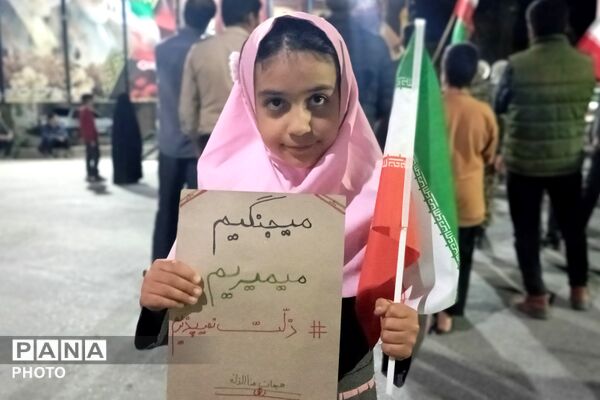 میجنگیم
میمیریم
# ذلّت نمیپذیریم
PANA
PHOTO